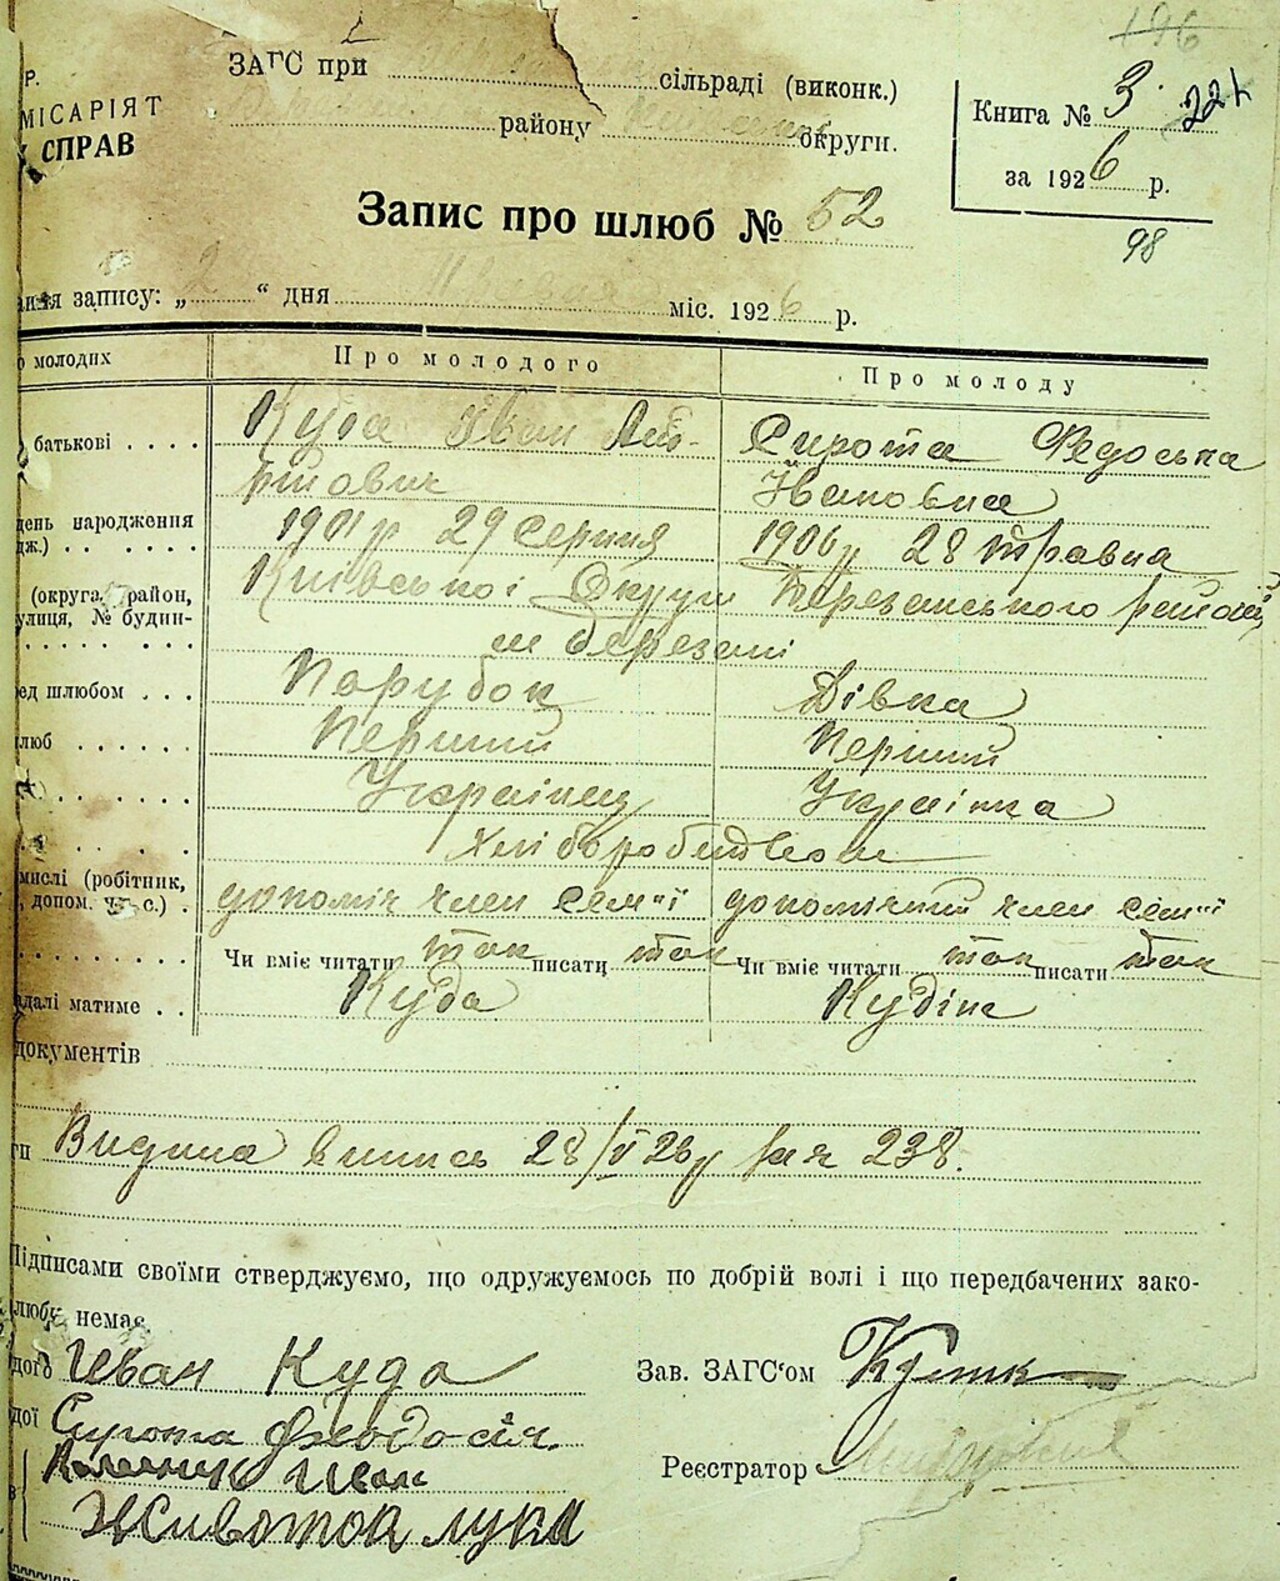 196
Р.
МІСАРІЯТ
СПРАВ
ЗАГС при сільраді (виконк.)
району округи.
Книга № 3 221
за 1926 р.
98
Запис про шлюб № 52
запису: „2“ дня міс. 1926 р.
молодих Про молодого Про молоду
батькові . . . . Куда Іван Сирота Федоська
Івановна
день народження 1901 р 29 Серпня 1906 р 28 травна
дж.) . . . . . .
(округа, район, Київської Округи Березанського району
улиця, № будин- м Березані
ед шлюбом . . . Парубок Дівка
люб . . . . . . Перший Перший
Українец Українка
Хліборобство
мислі (робітник, допоміч член семʼї допомічний член семʼї
, допом. чл. с.) .
Чи вміє читати так писати так Чи вміє читати так писати так
далі матиме . . Куда Кудіна
документів
Видана випись 28/V 26 р за № 238.
Підписами своїми стверджуємо, що одружуємось по добрій волі і що передбачених зако-
любу немає.
дого Іван Куда Зав. ЗАГС‘ом
дої Сирота Феодосія
Іван Реєстратор
Животок Лука